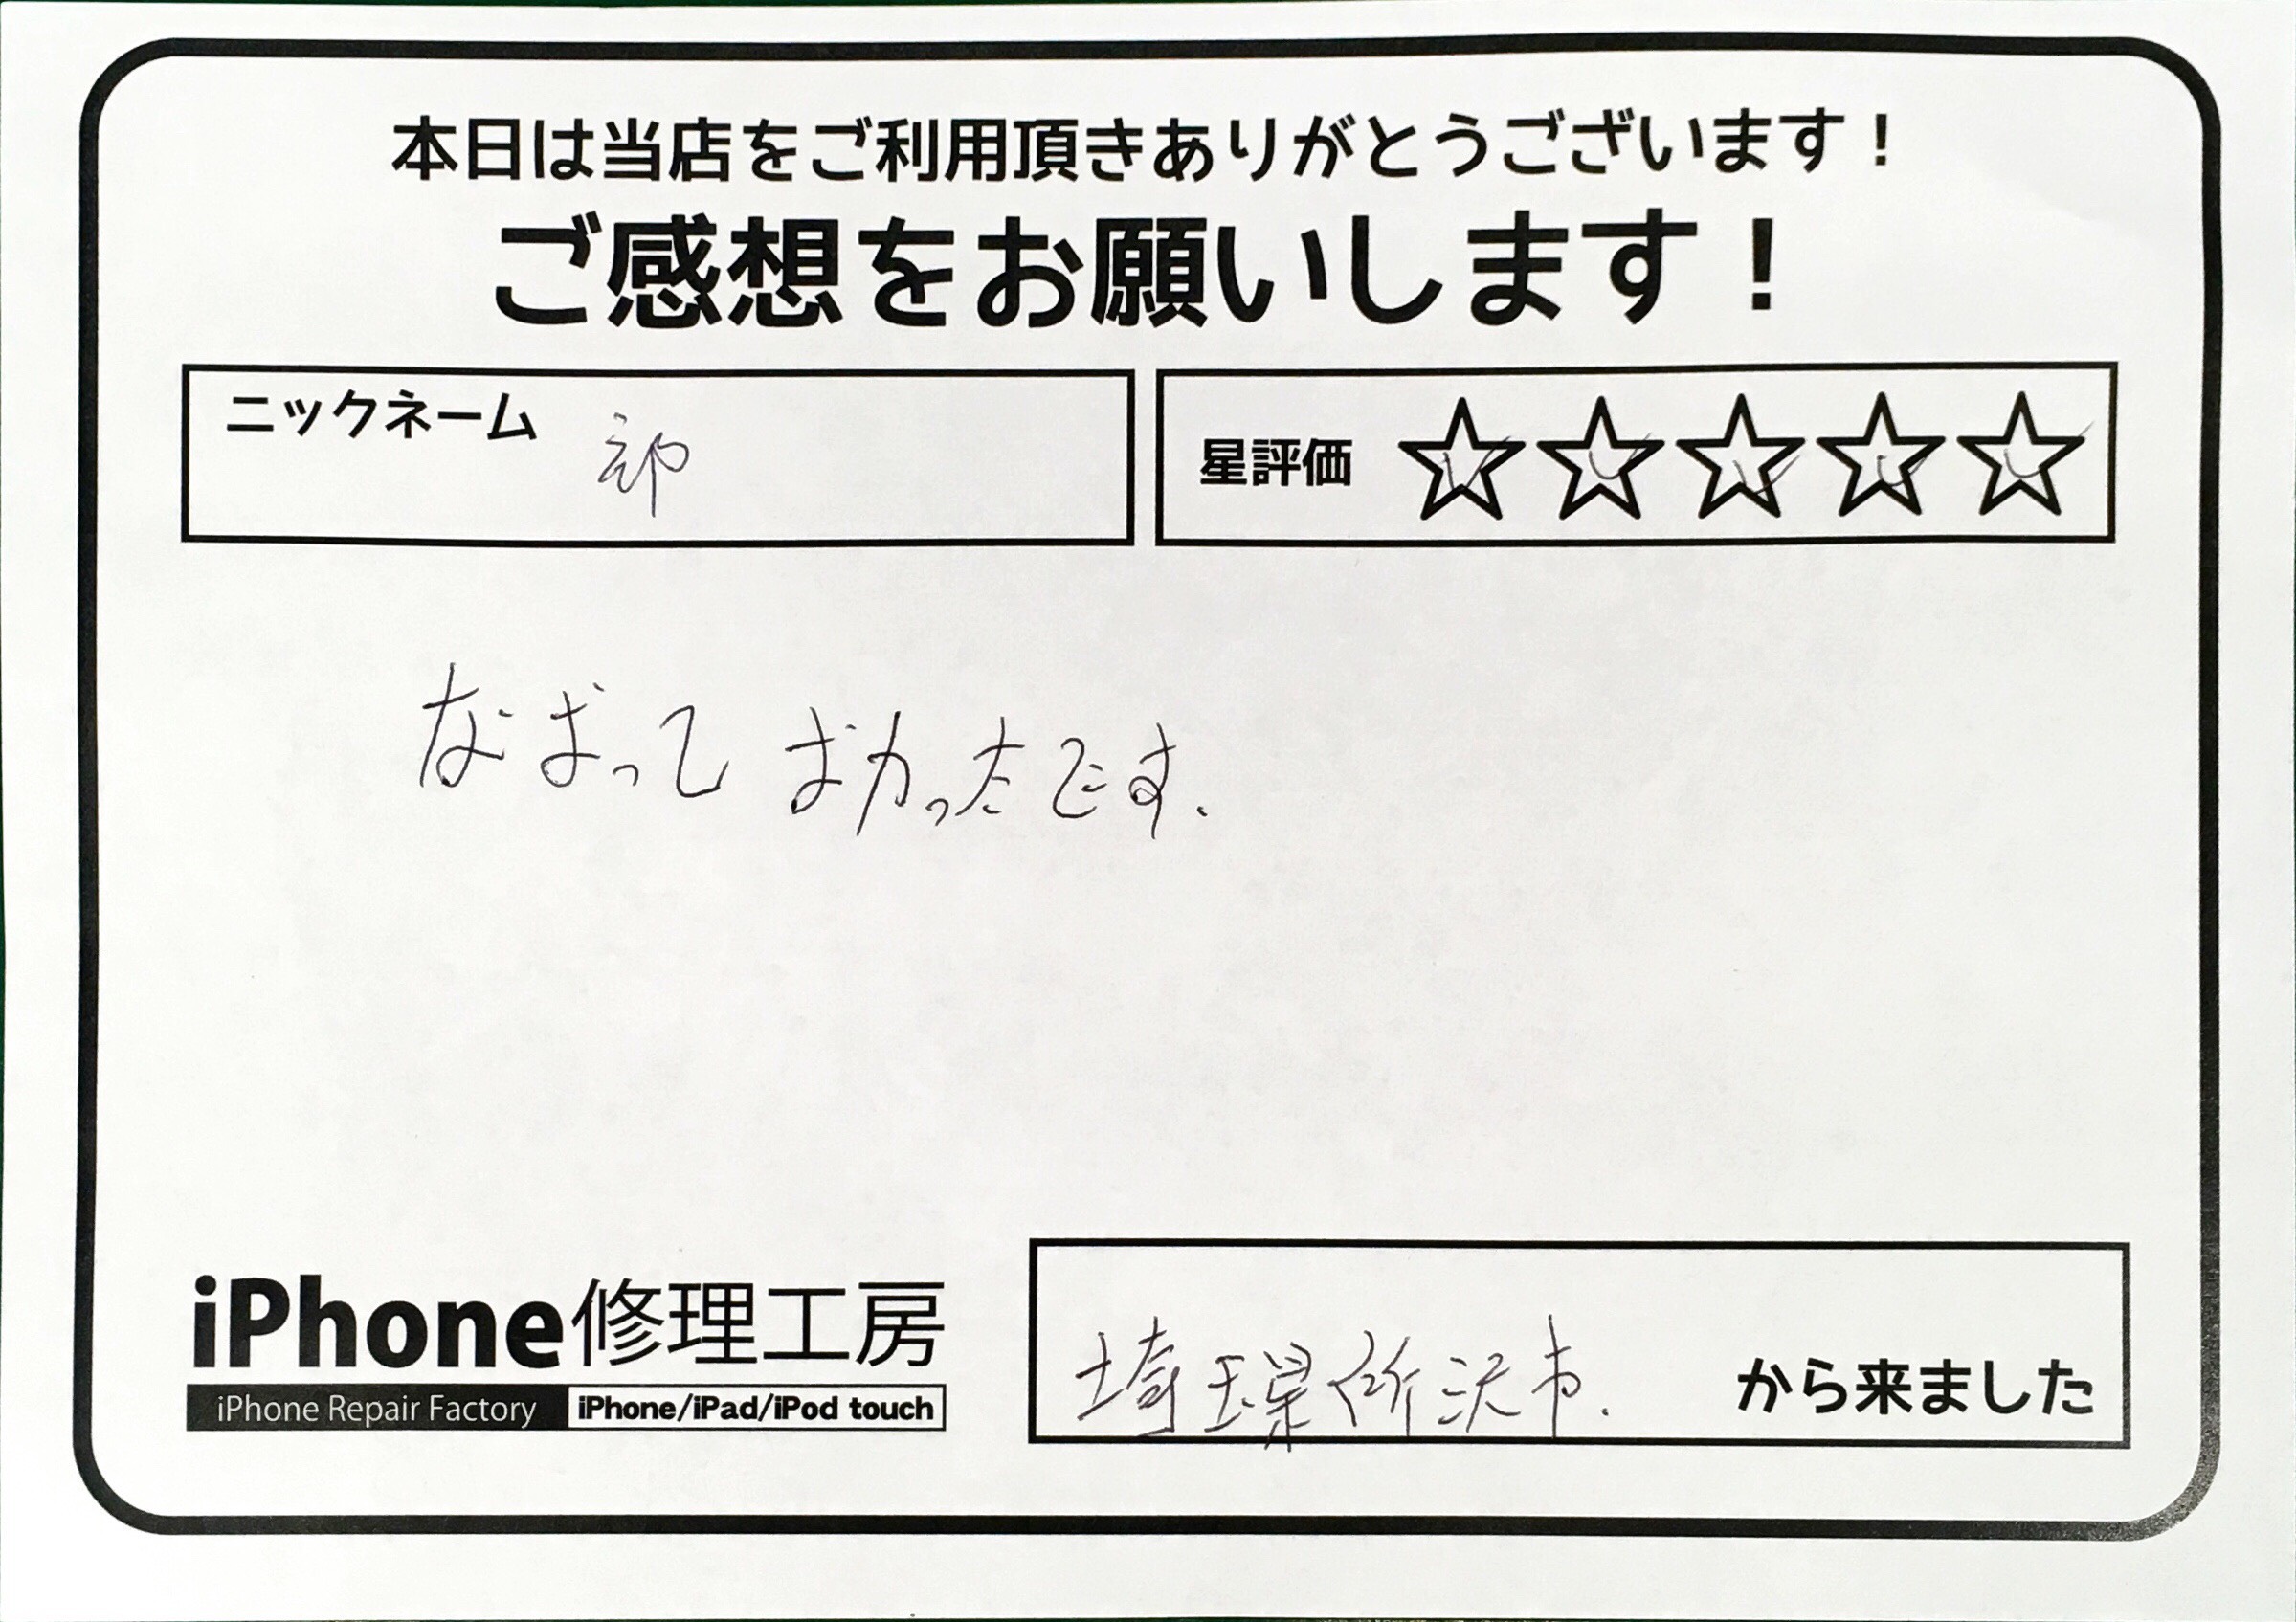 本日は当店をご利用頂きありがとうございます！
ご感想をお願いします！
ニックネーム
星評価 ☆☆☆☆☆
です.
iPhone修理工房
iPhone Repair Factory iPhone/iPad/iPod touch
埼玉県所沢市. から来ました